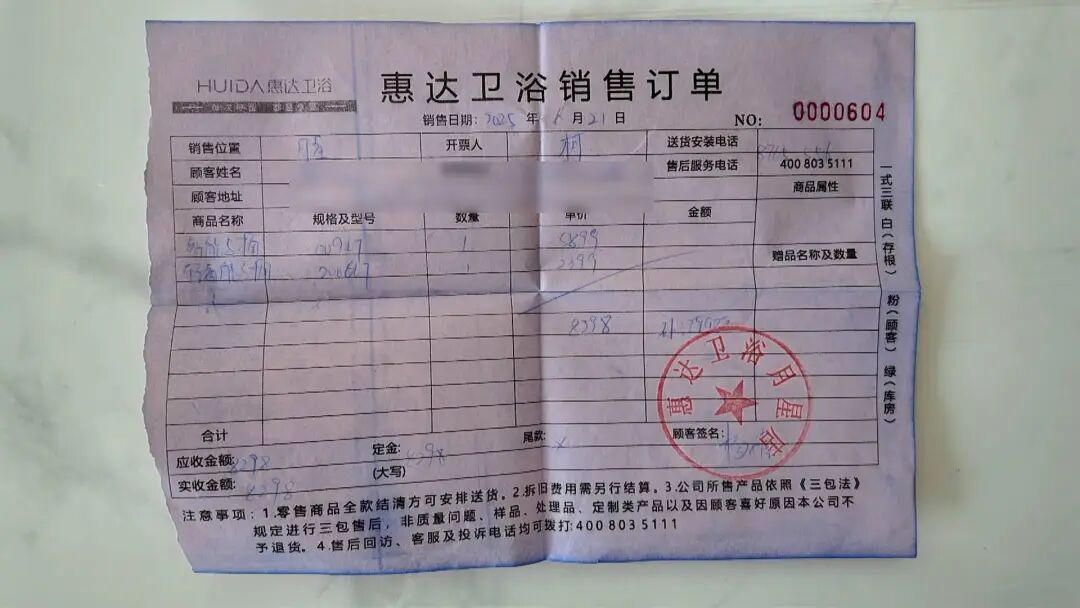 HUIDA惠达卫浴
惠达卫浴销售订单
销售日期: 2025 年 月 21 日
NO: 0000604
销售位置 月星 开票人 柯 送货安装电话
顾客姓名 售后服务电话 400 803 5111
顾客地址 商品属性
商品名称 规格及型号 数量 单价 金额
智能马桶 1 5899
马桶 1 2399
赠品名称及数量
8298
合计
应收金额: 8298 定金: 8298 尾款: x
实收金额: 8298 (大写)
顾客签名:
惠达卫浴月星店
注意事项：1.零售商品全款结清方可安排送货。2.拆旧费用需另行结算。3.公司所售产品依照《三包法》
规定进行三包售后，非质量问题、样品、处理品、定制类产品以及因顾客喜好原因本公司不
予退货。4.售后回访、客服及投诉电话均可拨打:400 803 5111
一式三联 白(存根) 粉(顾客) 绿(库房)